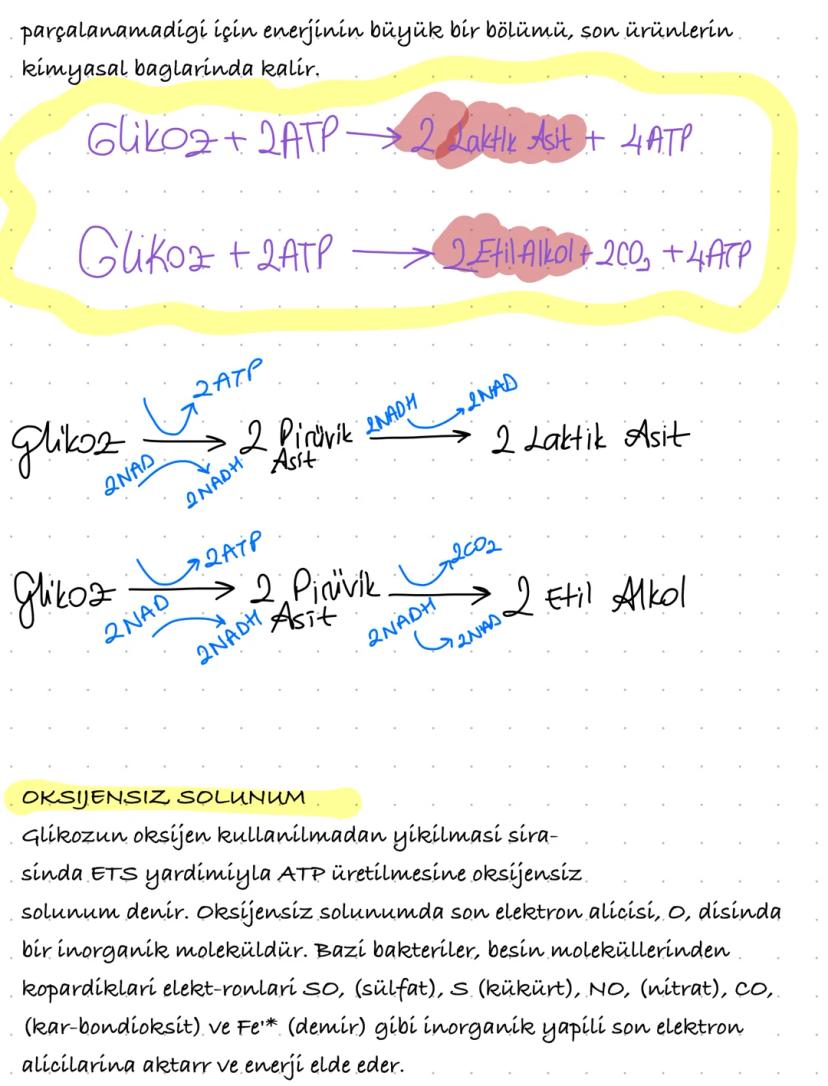 parçalanamadigi için enerjinin büyük bir bölümü, son ürünlerin
kimyasal baglarinda kalir.
Glikoz + 2ATP → 2 Laktik Asit + 4ATP
Glikoz + 2ATP → 2 Etil Alkol + 2CO2 + 4ATP
2ATP
2NADH
2NAD
Glikoz → 2 Pirüvik Asit → 2 Laktik Asit
2NAD
2NADH
2ATP
2CO2
Glikoz → 2 Pirüvik Asit → 2 Etil Alkol
2NAD
2NADH
2NADH
2NAD
OKSIJENSIZ SOLUNUM
Glikozun oksijen kullanilmadan yikilmasi sira-
sinda ETS yardimiyla ATP üretilmesine oksijensiz
solunum denir. Oksijensiz solunumda son elektron alicisi, O, disinda
bir inorganik moleküldür. Bazi bakteriler, besin moleküllerinden
kopardiklari elekt-ronlari SO, (sülfat), S (kükürt), NO, (nitrat), CO,
(kar-bondioksit) ve Fe'* (demir) gibi inorganik yapili son elektron
alicilarina aktarr ve enerji elde eder.